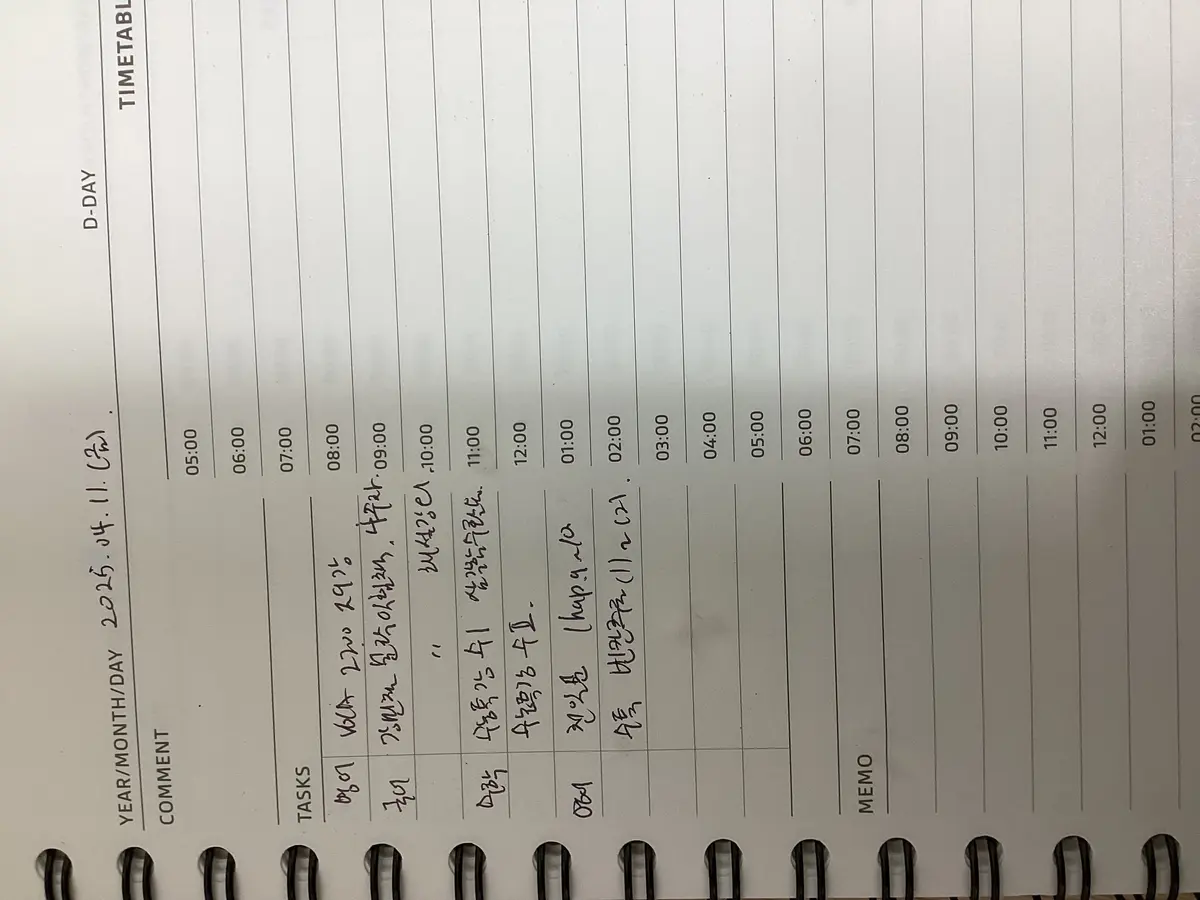 YEAR/MONTH/DAY 2025. 04. 11. (금).
D-DAY
COMMENT
TIMETABL
05:00
06:00
07:00
08:00
09:00
10:00
11:00
12:00
01:00
02:00
03:00
04:00
05:00
06:00
07:00
08:00
09:00
10:00
11:00
12:00
01:00
02:00
TASKS
영어 VOCA 2200 29강
국어 강민철
〃 해설강의.
수학 수능특강 수Ⅰ
수능특강 수Ⅱ.
영어 천일문 Chap.9~10
수특 빈칸추론 (1)~(2).
MEMO